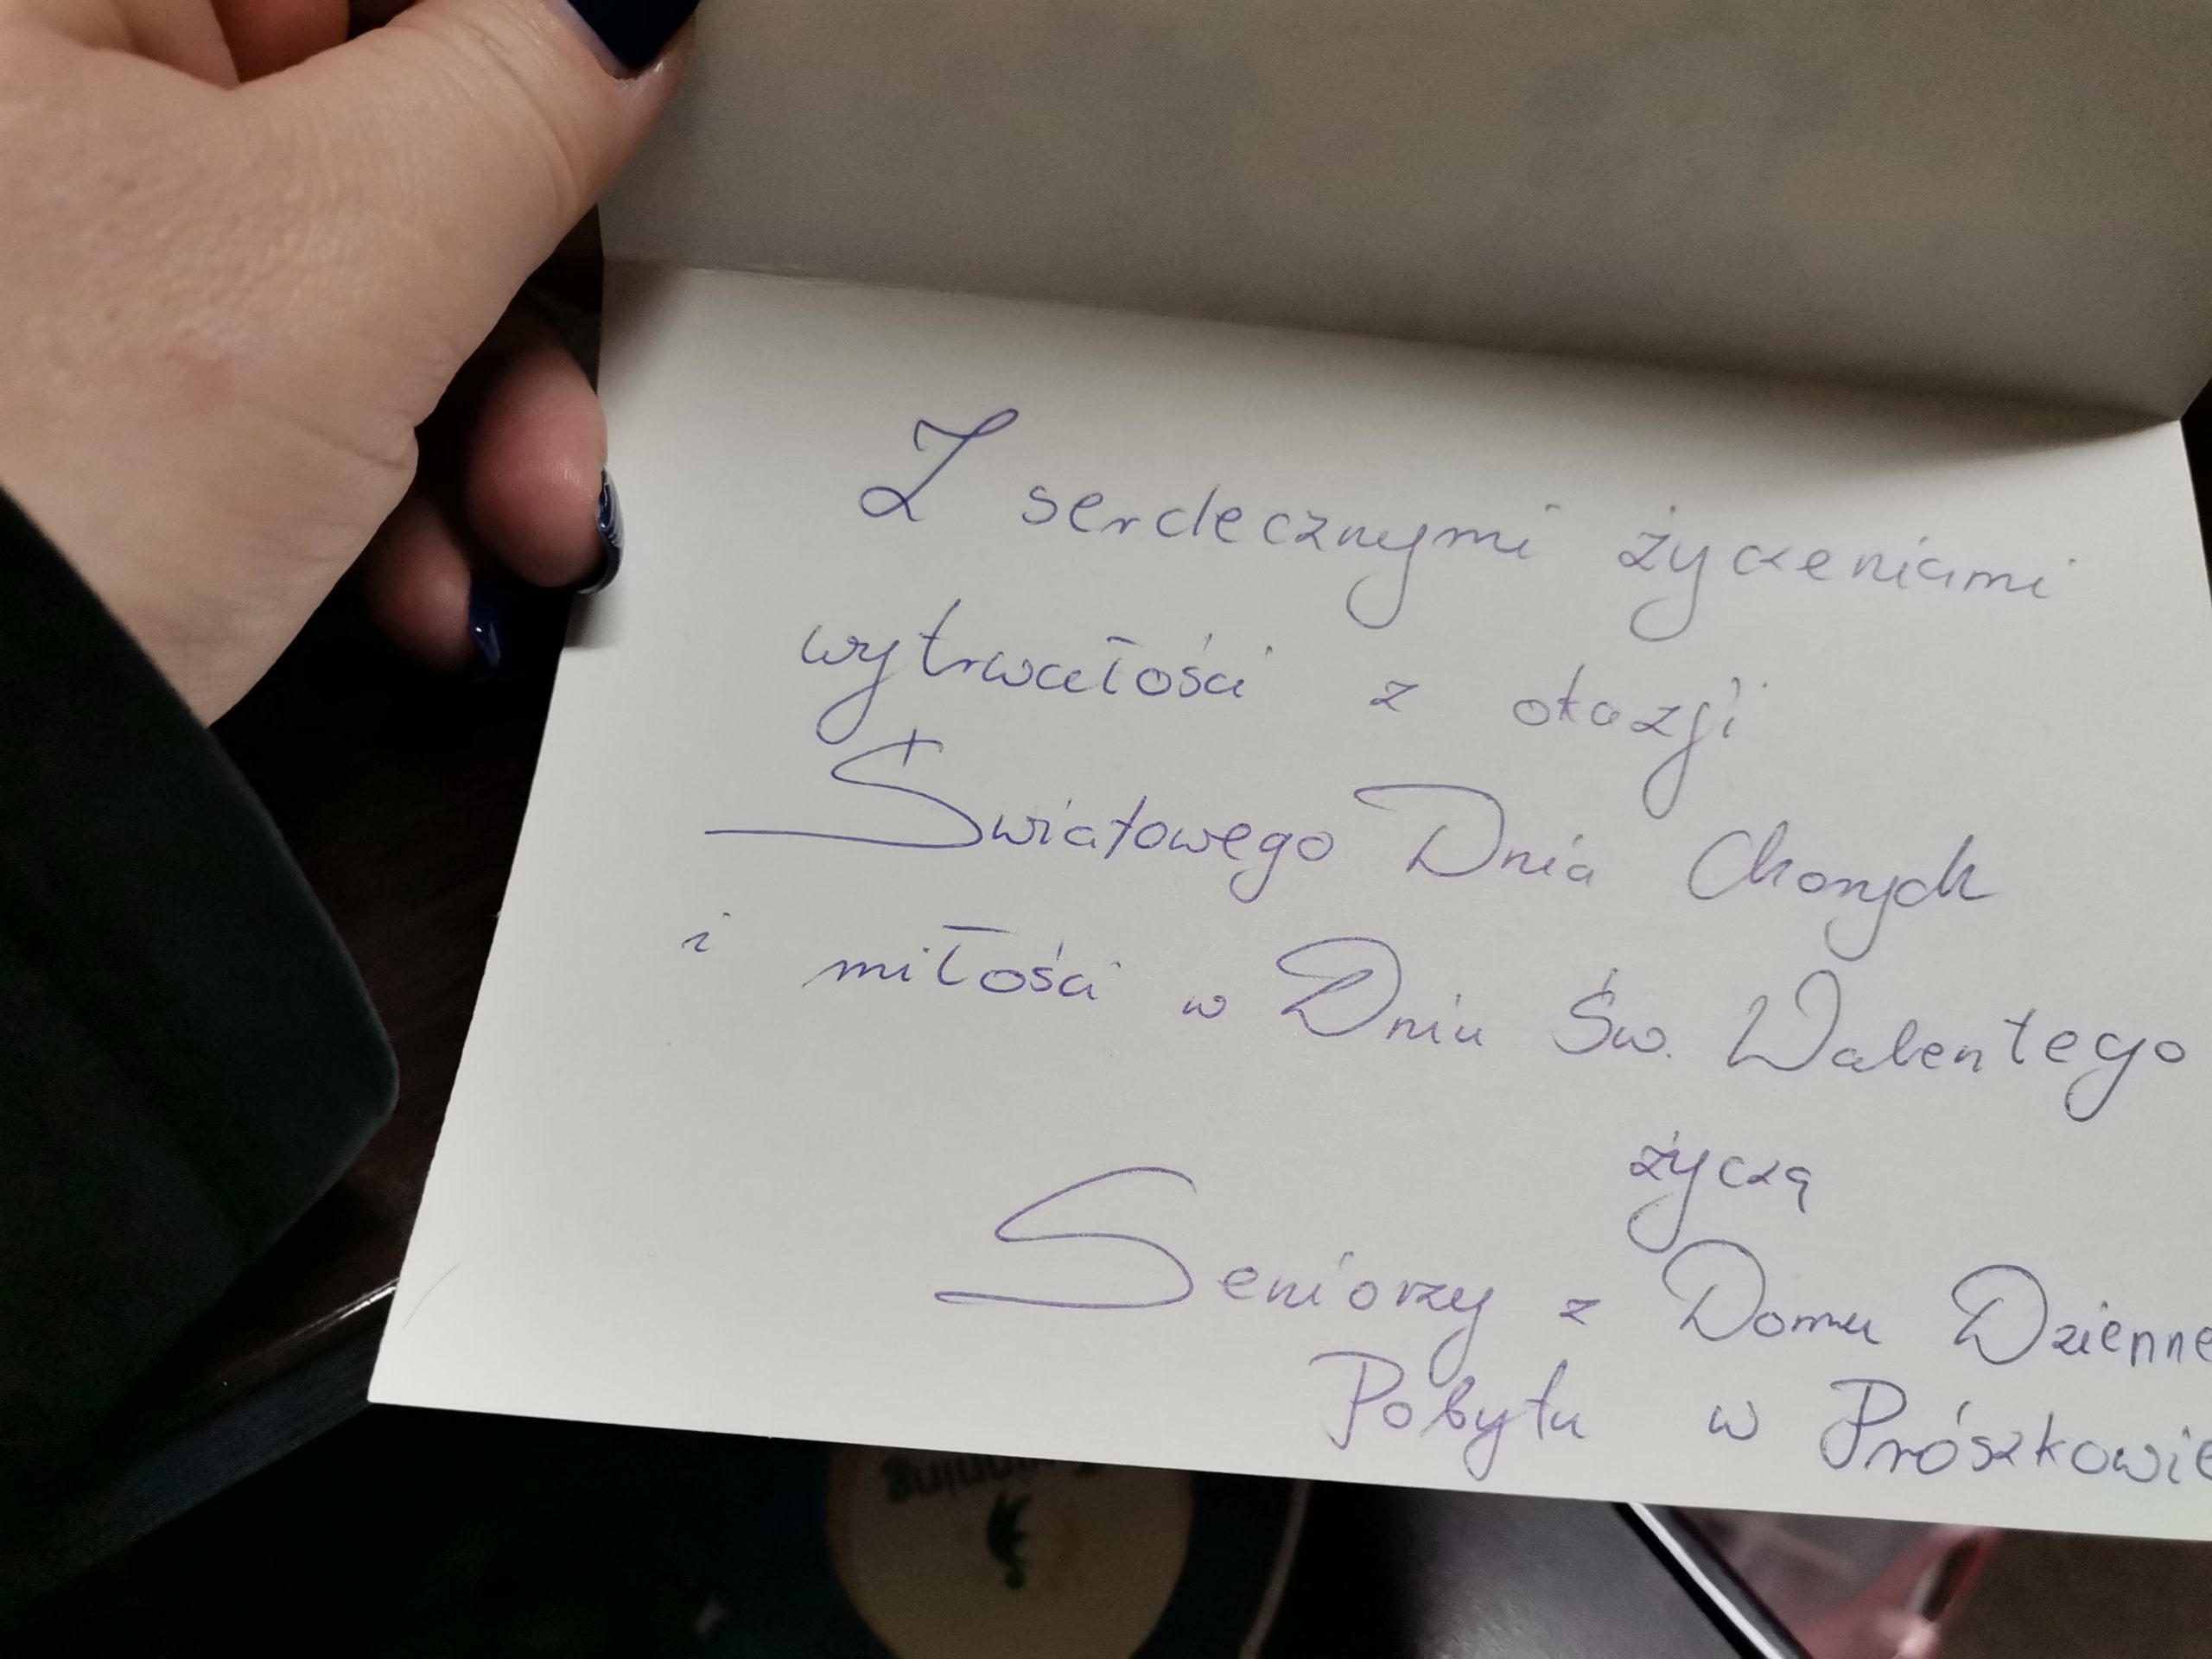 Z serdecznymi życzeniami
wytrwałości z okazji
Światowego Dnia Chorych
i miłości w Dniu Św. Walentego
życzą
Seniorzy z Domu Dzienne
Pobytu w Prószkowie